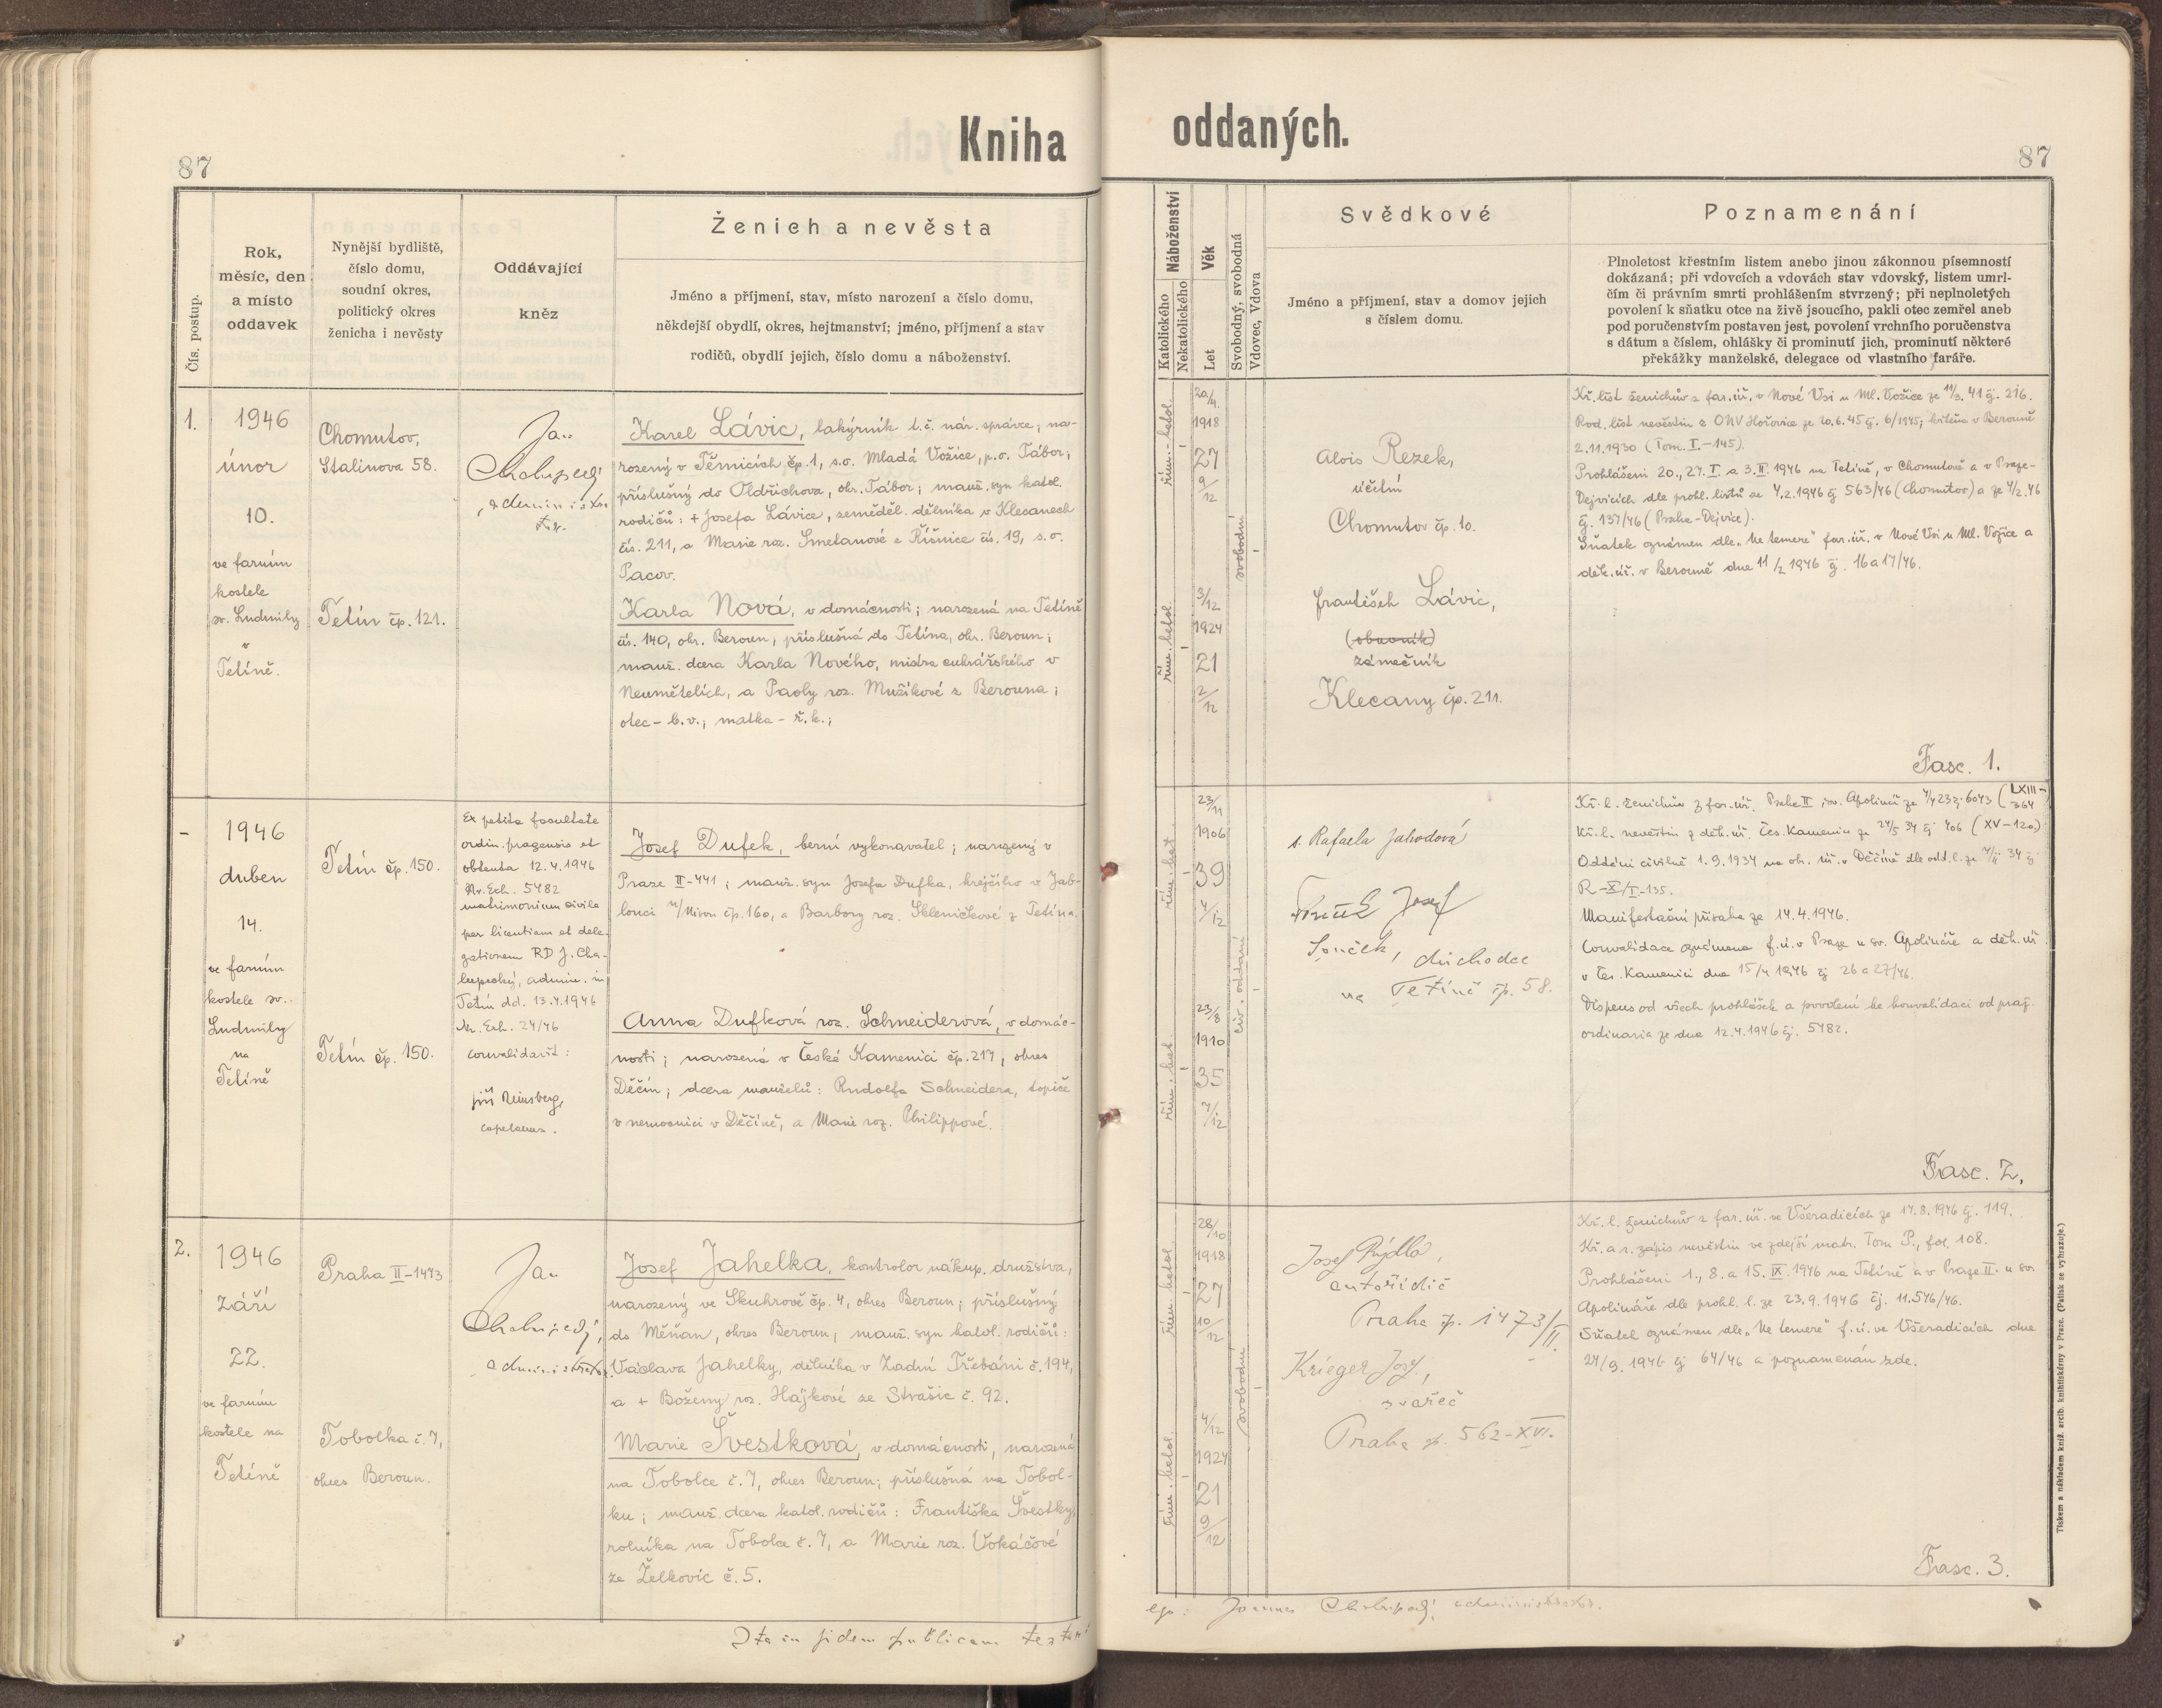 Kniha oddaných.
87
87
Čís. postup.
Rok,
měsíc, den
a místo
oddavek
Nynější bydliště,
číslo domu,
soudní okres,
politický okres
ženicha i nevěsty
Oddávající
kněz
Ženich a nevěsta
Jméno a příjmení, stav, místo narození a číslo domu,
někdejší obydlí, okres, hejtmanství; jméno, příjmení a stav
rodičů, obydlí jejich, číslo domu a náboženství.
Náboženství
Katolického
Nekatolického
Věk
Let
Svobodný, svobodná
Vdovec, Vdova
Svědkové
Jméno a příjmení, stav a domov jejich
s číslem domu.
Poznamenání
Plnoletost křestním listem anebo jinou zákonnou písemností
dokázaná; při vdovcích a vdovách stav vdovský, listem umrl-
čím či právním smrti prohlášením stvrzený; při neplnoletých
povolení k sňatku otce na živě jsoucího, pakli otec zemřel aneb
pod poručenstvím postaven jest, povolení vrchního poručenstva
s dátum a číslem, ohlášky či prominutí jich, prominutí některé
překážky manželské, delegace od vlastního faráře.
1.
1946
únor
10.
ve farním
kostele
sv. Ludmily
v
Tetíně.
Chomutov,
Stalinova 58.
Tetín čp. 121.
Jan
Chalupecký
administra-
tor
Karel Lávic, lakýrník t.č. nár. správce; na-
rozený v Těmicích čp. 1, s.o. Mladá Vožice, p.o. Tábor;
příslušný do Oldřichova, okr. Tábor; manž. syn katol.
rodičů: + Josefa Lávice, zeměděl. dělníka v Klecanech
čís. 211, a Marie roz. Smetanové z Říšnice čís. 19, s.o.
Pacov.
Karla Nová, v domácnosti; narozená na Tetíně
čís. 140, okr. Beroun, příslušná do Tetína, okr. Beroun;
manž. dcera Karla Nového, mistra cukrářského v
Neumětelích, a Paoly roz. Mužíkové z Berouna;
otec - b.v.; matka - ř.k.;
řím.-katol.
20/4.
1918
27
9/12
svobodní
řím. katol.
3/12
1924
21
2/12
Alois Rezek,
účetní
Chomutov čp. 10.
František Lávic,
(obuvník)
zámečník
Klecany čp. 211.
Kř. list ženichův z far. úř. v Nové Vsi u Ml. Vožice ze 11/3. 41 čj. 216.
Rod. list nevěstin z ONV Hořovice ze 20.6.45 čj. 6/1945; křtěna v Berouně
2.11.1930 (Tom. I.-145).
Prohlášeni 20., 27. I. a 3. II. 1946 na Tetíně, v Chomutově a v Praze-
Dejvicích dle prohl. listů ze 4.2.1946 čj 563/46 (Chomutov) a ze 4/2.46
čj. 137/46 (Praha-Dejvice).
Sňatek oznámen dle „Ne temere" far. úř. v Nové Vsi u Ml. Vožice a
děk. úř. v Berouně dne 11/2 1946 čj. 16 a 17/46.
Fasc. 1.
-
1946
duben
14.
ve farním
kostele sv.
Ludmily
na
Tetíně
Tetín čp. 150.
Tetín čp. 150.
Ex petita facultate
ordin. pragensis et
obtenta 12.4.1946
Nr. Exh. 5482
matrimonium civile
per licentiam et dele-
gationem RD J. Cha-
lupecký, admin. in
Tetín dd. 13.4.1946
Nr. Exh. 24/46
convalidavit:
Jiří Reinsberg,
capelanus.
Josef Dufek, berní vykonavatel; narozený v
Praze II-441; manž. syn Josefa Dufka, krejčího v Jab-
lonci n/Nisou čp. 160, a Barbory roz. Skleničkové z Tetína.
Anna Dufková roz. Schneiderová, v domác-
nosti; narozená v České Kamenici čp. 217, okres
Děčín; dcera manželů: Rudolfa Schneidera, topiče
v nemocnici v Děčíně, a Marie roz. Philippové.
řím. kat.
23/11
1906
39
4/12
civ. oddaní
řím. kat
23/8
1910
35
7/12
s. Rafaela Jahodová
Josef
Souček, důchodce
na Tetíně čp. 58.
Kř. l. ženichův z far. úř. Praha II, sv. Apolinář ze 4/4 23 čj. 6043 (LXIII-364
Kř. l. nevěstin z děk. úř. Čes. Kamenice ze 24/5 34 čj 406 (XV-120)
Oddáni civilně 1.9.1934 na ok. úř. v Děčíně dle odd. l. ze 7/11 34 čj
R-X/I-135.
Manifestační přísaha ze 14.4.1946.
Convalidace oznámena f. ú. v Praze u sv. Apolináře a děk. úř.
v Čes. Kamenici dne 15/4 1946 čj 26 a 27/46.
Dispens od všech prohlášek a povolení ke konvalidaci od praž.
ordinaria ze dne 12.4.1946 čj. 5482.
Fasc. 2.
2.
1946
září
22.
ve farním
kostele na
Tetíně
Praha II-1473
Tobolka č. 7,
okres Beroun.
Jan
Chalupecký,
administrátor.
Josef Jahelka, kontrolor nákup. družstva,
narozený ve Skuhrově čp. 4, okres Beroun; příslušný
do Měňan, okres Beroun, manž. syn katol. rodičů:
Václava Jahelky, dělníka v Zadní Třebáni č. 194,
a + Boženy roz. Hájkové ze Strašic č. 92.
Marie Švestková, v domácnosti, narozená
na Tobolce č. 7, okres Beroun; příslušná na Tobol-
ku; manž. dcera katol. rodičů: Františka Švestky,
rolníka na Tobolce č. 7, a Marie roz. Vokáčové
ze Želkovic č. 5.
řím. katol.
28/10
1918
27
10/12
svobodní
řím. katol.
4/12
1924
21
9/12
Josef Rýdlo,
autořidič
Praha čp. 1473/II.
Krieger Josef,
svářeč
Praha čp. 562-XVI.
Kř. l. ženichův z far. úř. ve Všeradicích ze 14.8.1946 čj. 119.
Kř. a r. zápis nevěstin ve zdejší matr. Tom P., fol. 108.
Prohlášeni 1., 8. a 15. IX. 1946 na Tetíně a v Praze II. u sv.
Apolináře dle prohl. l. ze 23.9.1946 čj. 11.546/46.
Sňatek oznámen dle „Ne temere" f. ú. ve Všeradicích dne
24/9. 1946 čj 64/46 a poznamenán zde.
Fasc. 3.
Ita in fidem publicam testor
ego: Joannes Chalupecký, administrator.
Tiskem a nákladem kníž. arcib. knihtiskárny v Praze. (Patisk se vyhrazuje.)